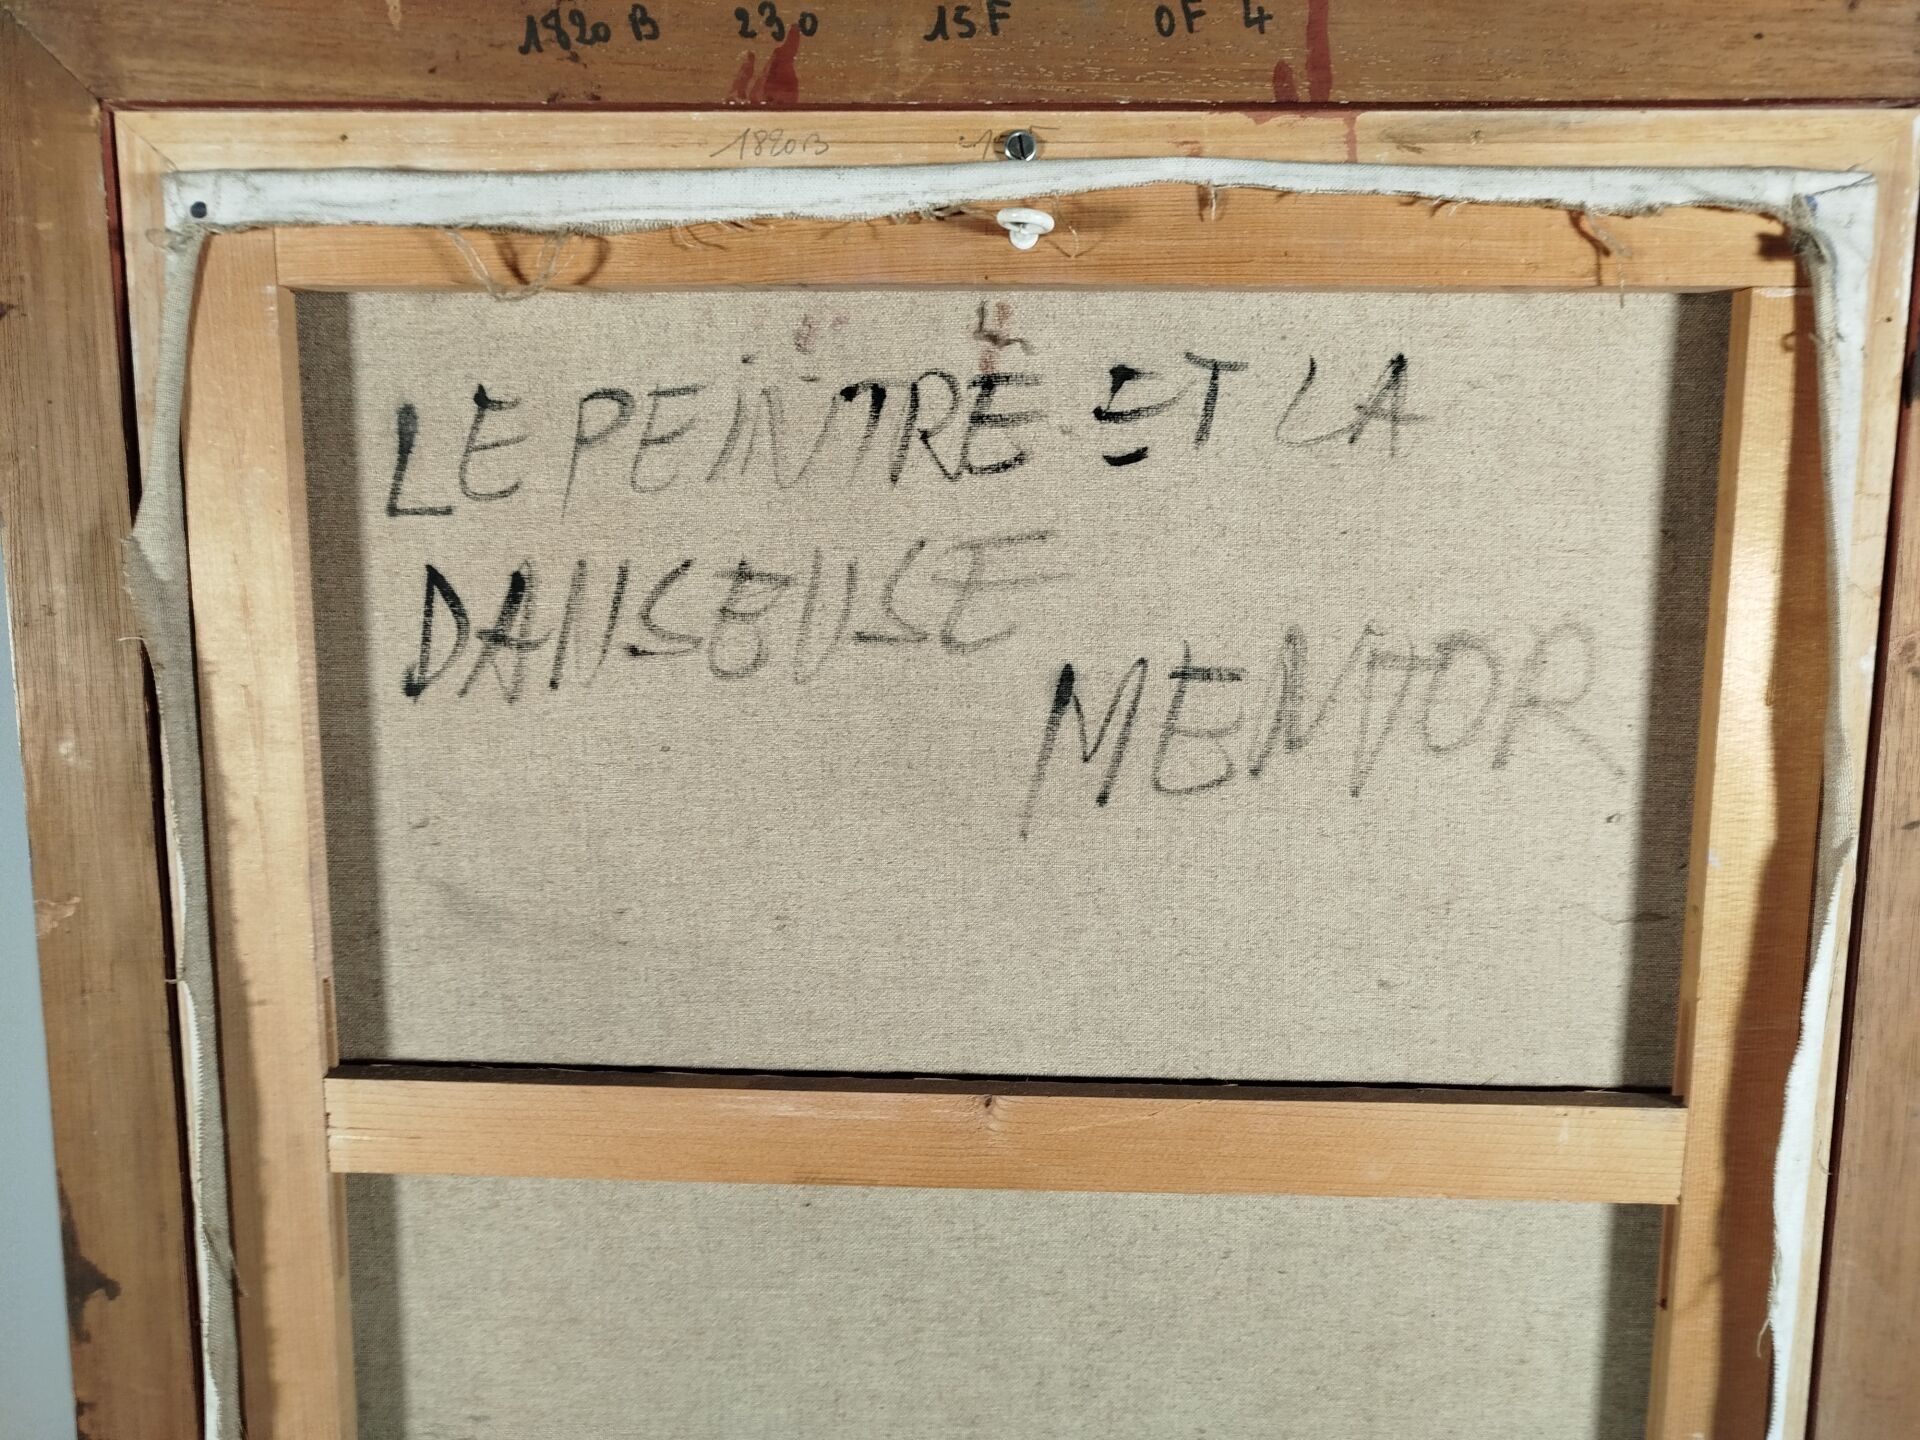 1820 B 230 15F OF 4
1820B 15F
LE PEINTRE ET LA
DANSEUSE
MENTOR